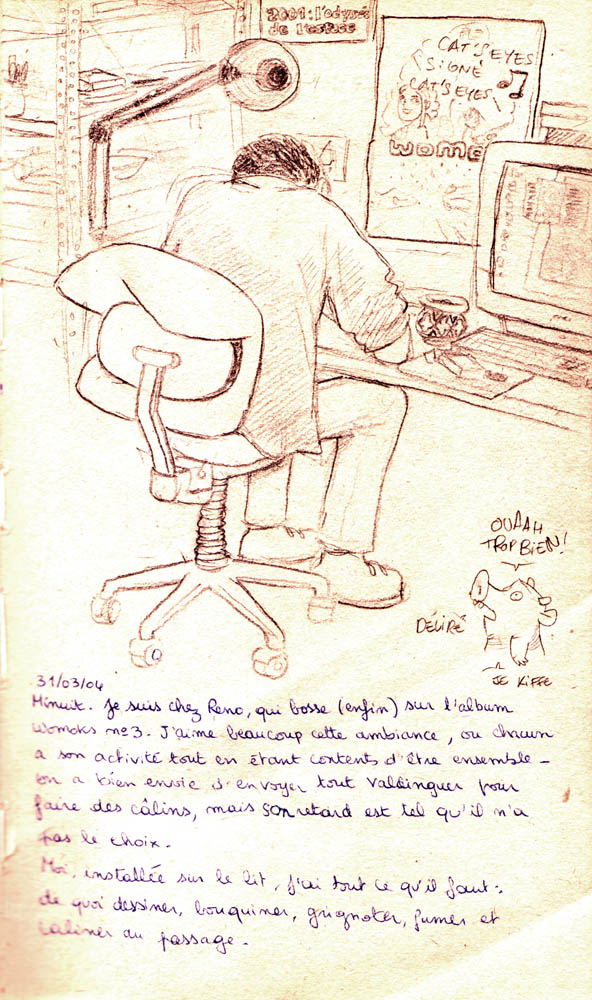 2001: l'odyssée
de l'espace
CAT'S EYES
SIGNÉ
CAT'S EYES
womo
OUAAH
TROP BIEN!
DÉLIRE
JE KIFFE
31/03/04
Minuit. Je suis chez Reno, qui bosse (enfin) sur l'album
womoks no3. J'aime beaucoup cette ambiance, ou chacun
a son activité tout en étant contents d'être ensemble -
on a bien envie d'envoyer tout valdinguer pour
faire des câlins, mais son retard est tel qu'il n'a
pas le choix.
Moi, installée sur le lit, j'ai tout ce qu'il faut:
de quoi dessiner, bouquiner, grignoter, fumer et
caliner au passage.